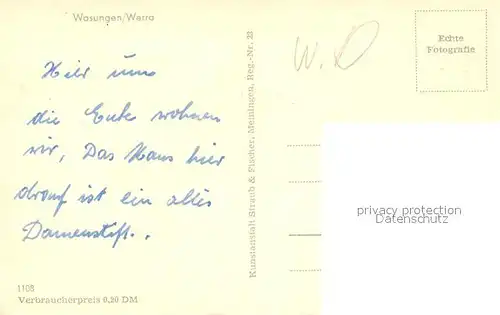 Wasungen/Werra
W. D
Echte
Fotografie
Hier ums
die Ecke wohnen
wir, Das Haus hier
drauf ist ein altes
Damenstift..
Kunstanstalt Straub & Fischer, Meiningen, Reg.-Nr. 23
privacy protection
Datenschutz
1108
Verbraucherpreis 0,20 DM